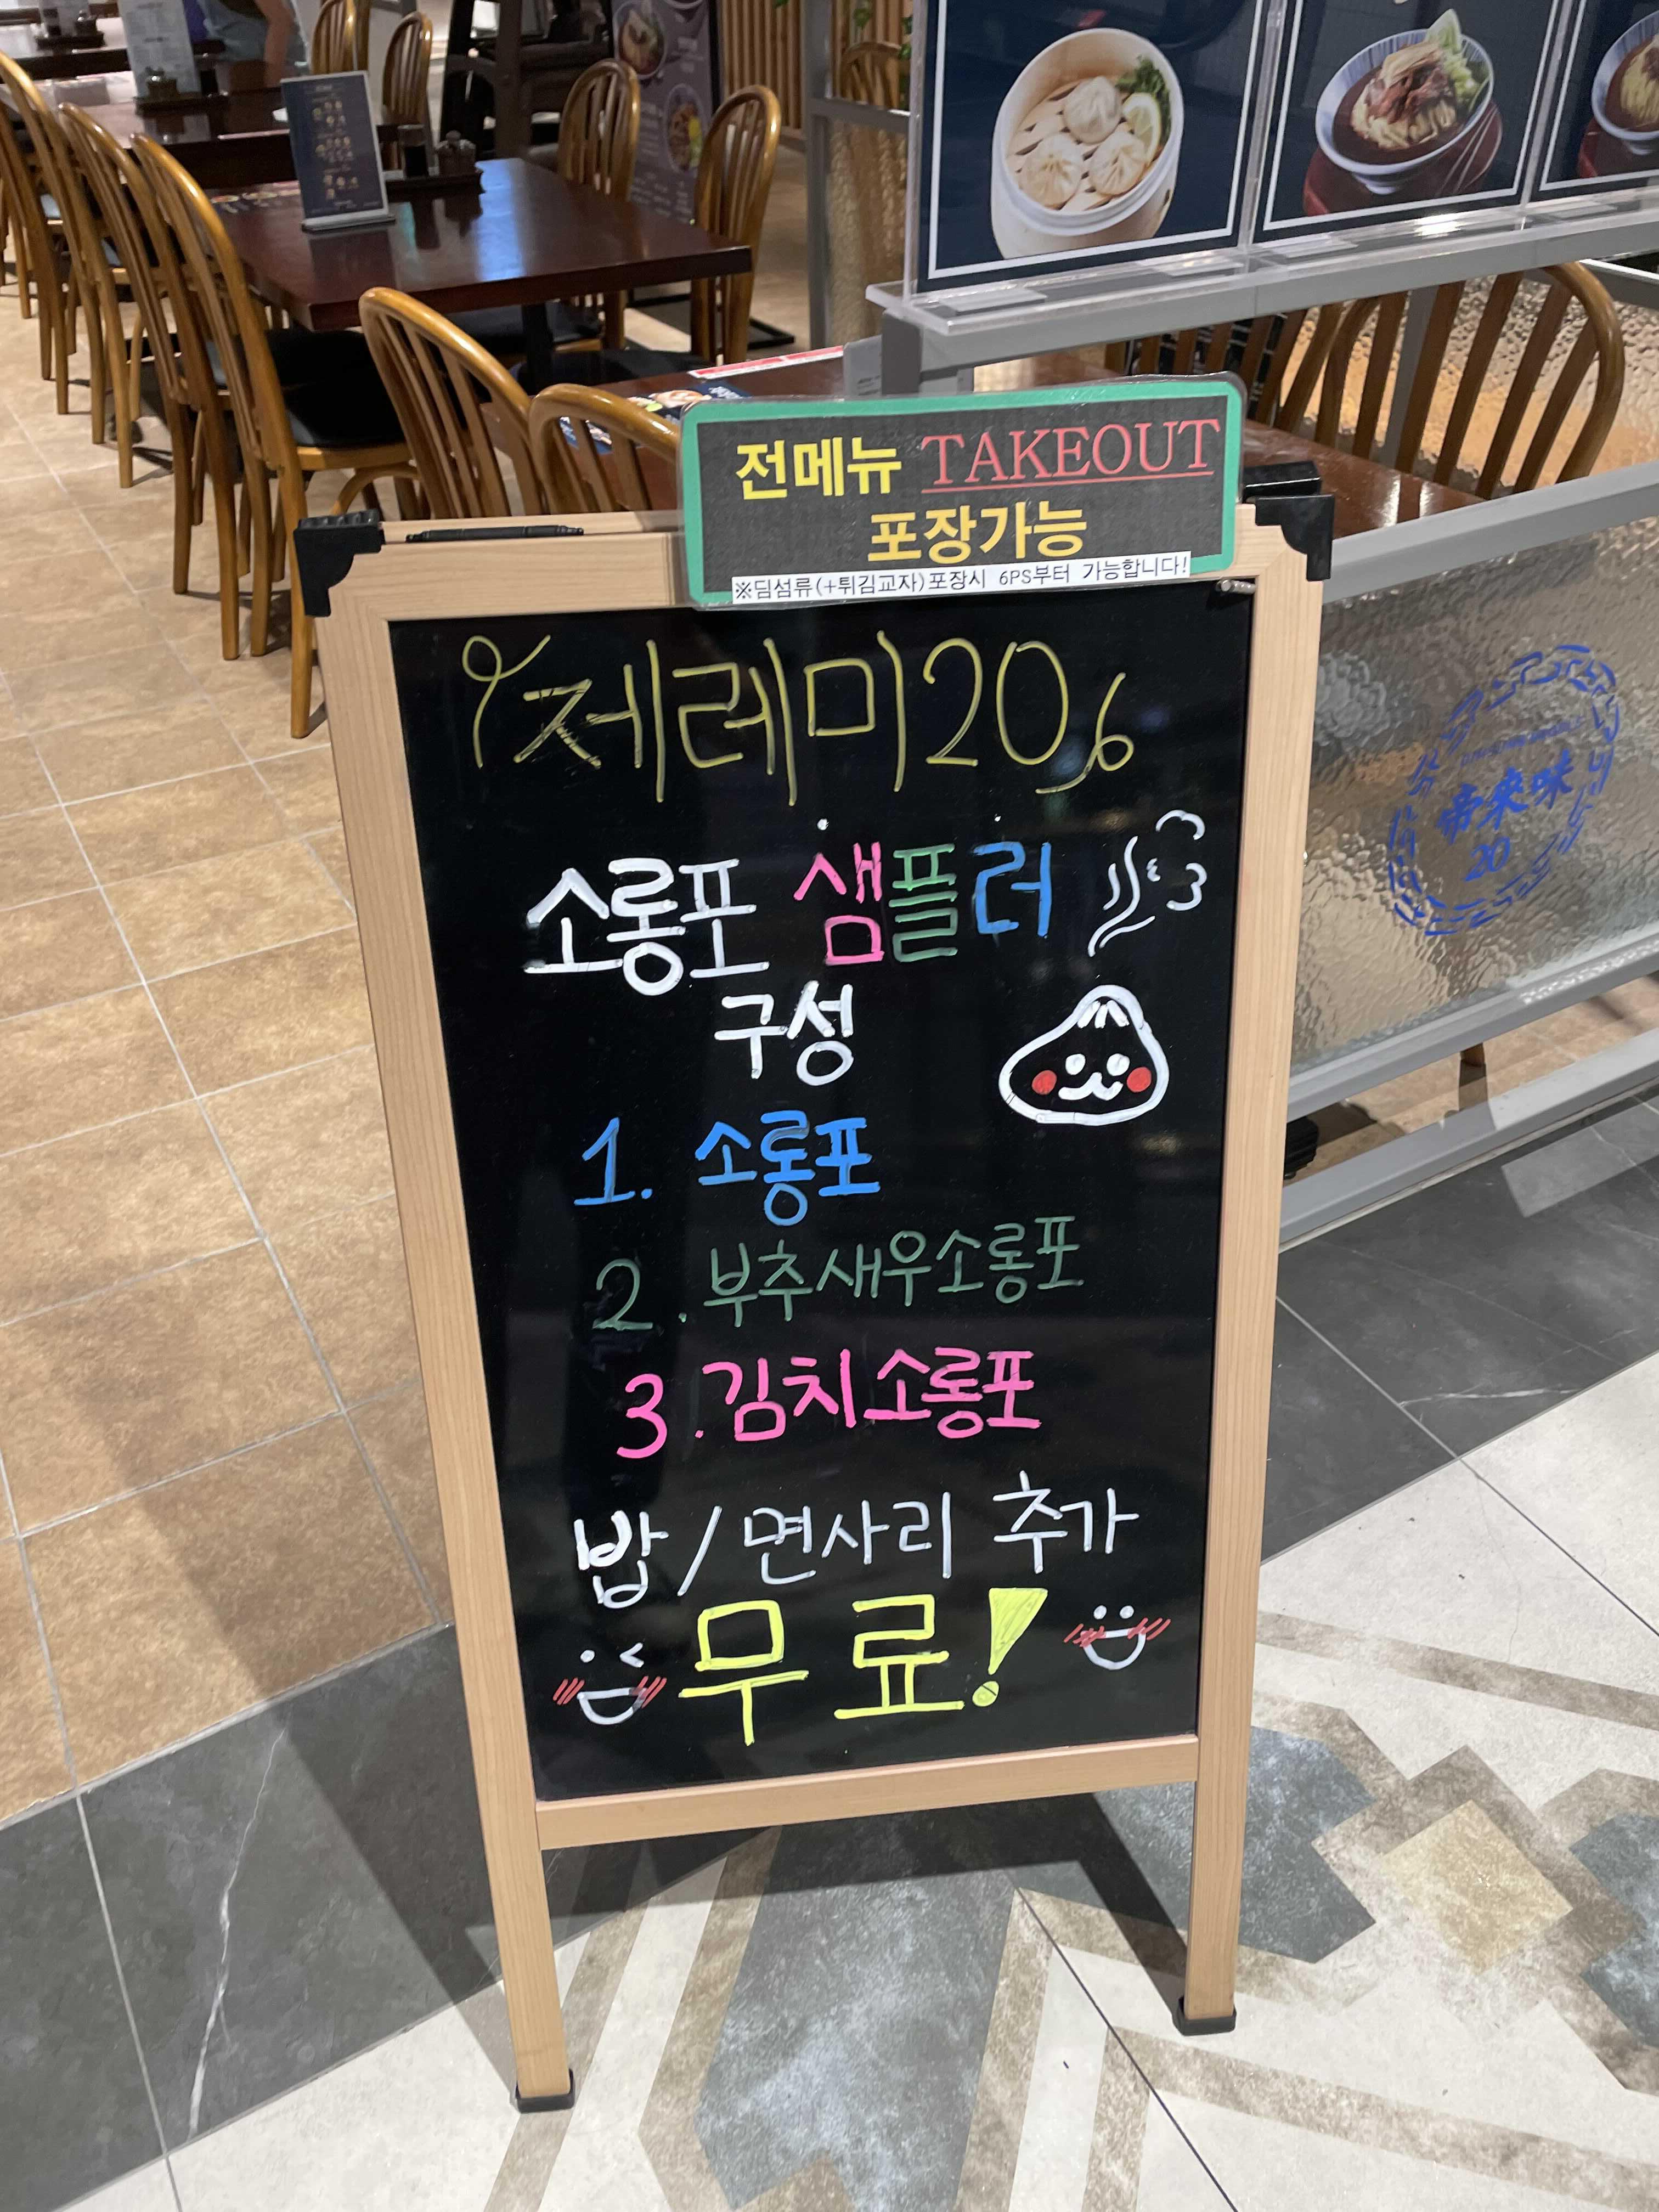 전메뉴 TAKEOUT
포장가능
※딤섬류(+튀김교자)포장시 6PS부터 가능합니다!
제레미20
소롱포 샘플러
구성
1. 소롱포
2. 부추새우소롱포
3. 김치소롱포
밥/면사리 추가
무료!
帝來味
20